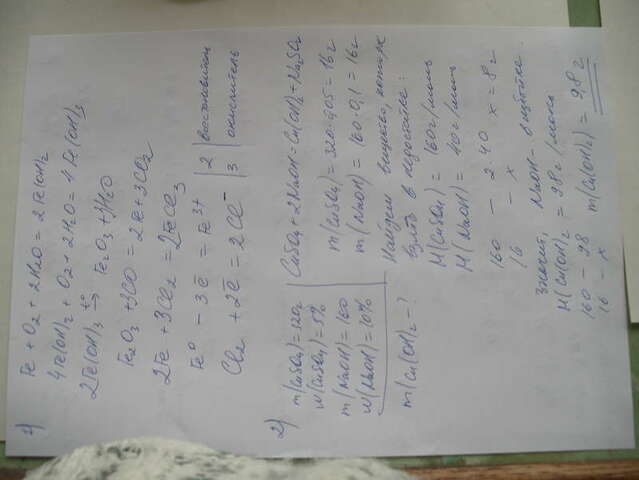 1) Fe + O2 + 2H2O = 2Fe(OH)2
4Fe(OH)2 + O2 + 2H2O = 4Fe(OH)3
2Fe(OH)3 t°→ Fe2O3 + 3H2O
Fe2O3 + 3CO = 2Fe + 3CO2
2Fe + 3Cl2 = 2FeCl3
Fe⁰ - 3ē = Fe³⁺ | 2 | восстановитель
Cl2 + 2ē = 2Cl⁻ | 3 | окислитель
2) m(CuSO4) = 320г
W(CuSO4) = 5%
m(NaOH) = 160
W(NaOH) = 10%
m(Cu(OH)2 - ?
CuSO4 + 2NaOH = Cu(OH)2 + Na2SO4
m(CuSO4) = 320·0,05 = 16г
m(NaOH) = 160·0,1 = 16г
Найдем вещество, которое
взято в недостатке:
M(CuSO4) = 160г/моль
M(NaOH) = 40г/моль
160 - 2·40 x = 8г
16 - x
Значит, NaOH - в избытке.
M(Cu(OH)2 = 98г/моль
160 - 98 m(Cu(OH)2) = 9,8г
16 - x